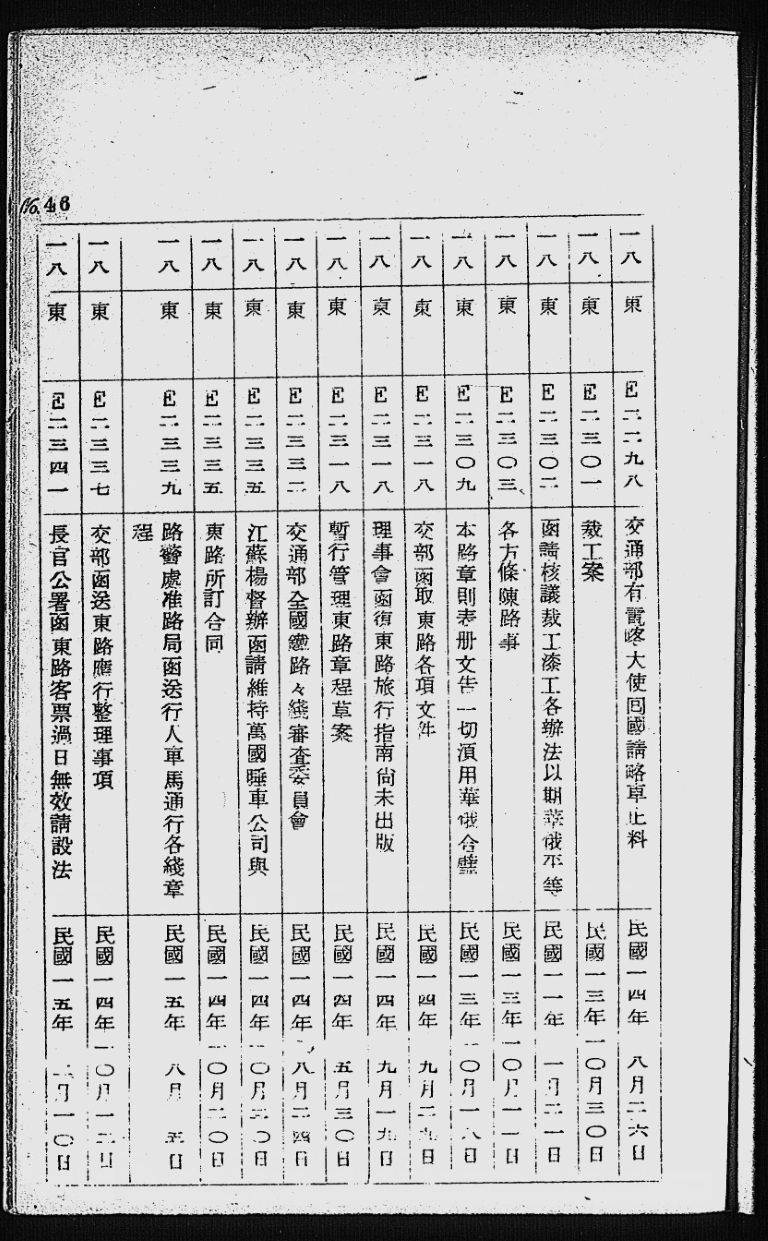 No. 46
一八 東 E二二九八 交通部有電喀大使回國請略車止料 民國一四年 八月二六日
一八 東 E二三〇一 裁工案 民國一三年一〇月三〇日
一八 東 E二三〇二 函請核議裁工漆工各辦法以期華俄平等 民國一一年 一月二一日
一八 東 E二三〇三 各方條陳路事 民國一三年一〇月一一日
一八 東 E二三〇九 本路章則表册文告一切須用華俄合璧 民國一三年一〇月一八日
一八 東 E二三一八 交部函取東路各項文件 民國一四年 九月二九日
一八 東 E二三一八 理事會函復東路旅行指南尚未出版 民國一四年 九月一九日
一八 東 E二三一八 暫行管理東路章程草案 民國一四年 五月三〇日
一八 東 E二三三二 交通部全國鐵路々綫審查委員會 民國一四年 八月二四日
一八 東 E二三三五 江蘇楊督辦函請維持萬國睡車公司與 民國一四年 〇月 〇日
一八 東 E二三三五 東路所訂合同 民國一四年 〇月二〇日
一八 東 E二三三九 路警處准路局函送行人車馬通行各綫章 民國一五年 八月 五日
程
一八 東 E二三三七 交部函送東路應行整理事項 民國一四年一〇月一二日
一八 東 E二三四一 長官公署函東路客票過日無效請設法 民國一五年 月一〇日